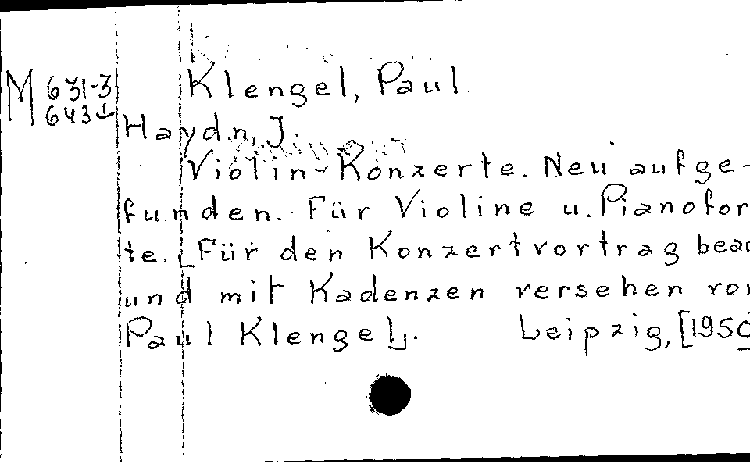 M 631-3
643↓
Klengel, Paul
Haydn, J.
Violin-Konzerte. Neu aufge-
funden. Für Violine u. Pianofor
te. [Für den Konzertvortrag bear
und mit Kadenzen versehen von
Paul Klengel]. Leipzig, [1950